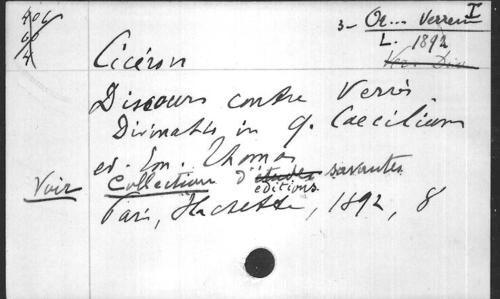 3 - Or... Verrem I
L. 1892
Cicéron
Discours contre Verrès
Divinatio in Q. Caecilium
ed. Em. Thomas
Voir Collection d'études savantes
editions
Paris, Hachette, 1892, 8